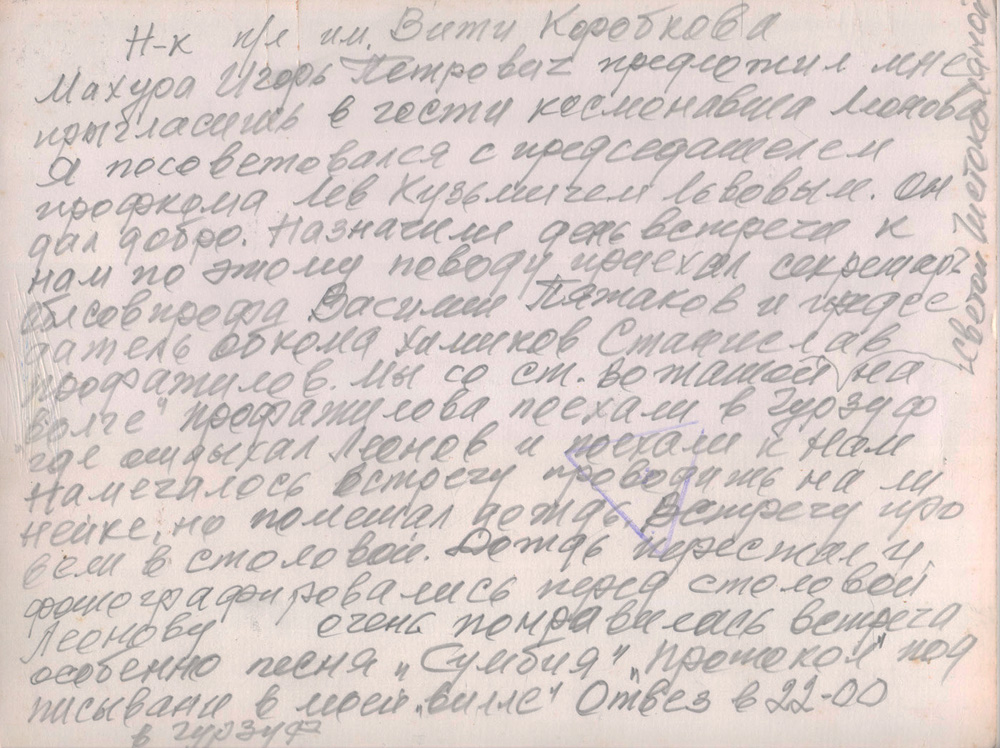 Н-к п/л им. Вити Коробкова
Махура Игорь Петрович предложил мне
прыгласить в гости космонавта Леонова
Я посоветовался с председателем
профкома Лев Хузьмичем Львовым. Он
дал добро. Назначили день встречи к
нам по этому поводу приехал секретарь
облсовпрофа Василий Пятаков и предсе
датель обкома химиков Станислав
Профатилов. Мы со ст. вожатой на
"волге" Профатилова поехали в Гурзуф
где отдыхал Леонов и поехали к нам
Намечалось встречу проводить на ли
нейке, но помешал дождь. Встречу про
вели в столовой. Дождь перестал и
фотографировались перед столовой
Леонову очень понравилась встреча
особенно песня „Сумбия" „Протокол" под
писывани в моей „вилле" Отвез в 22-00
в Гурзуф
Светой